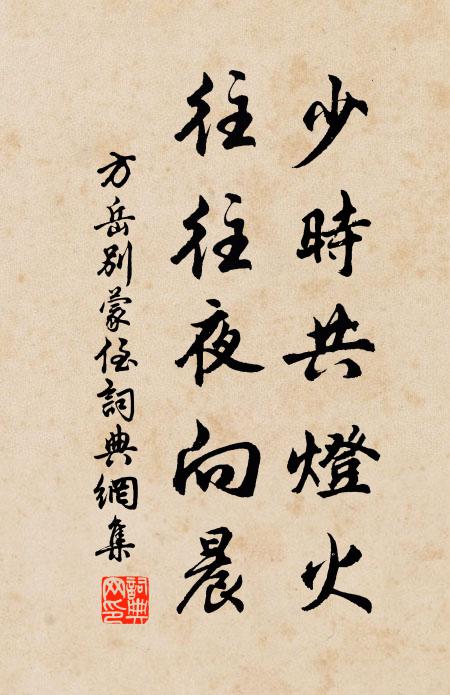 少時共燈火
往往夜向晨
方岳別蒙侄詞典網集
詞典網印